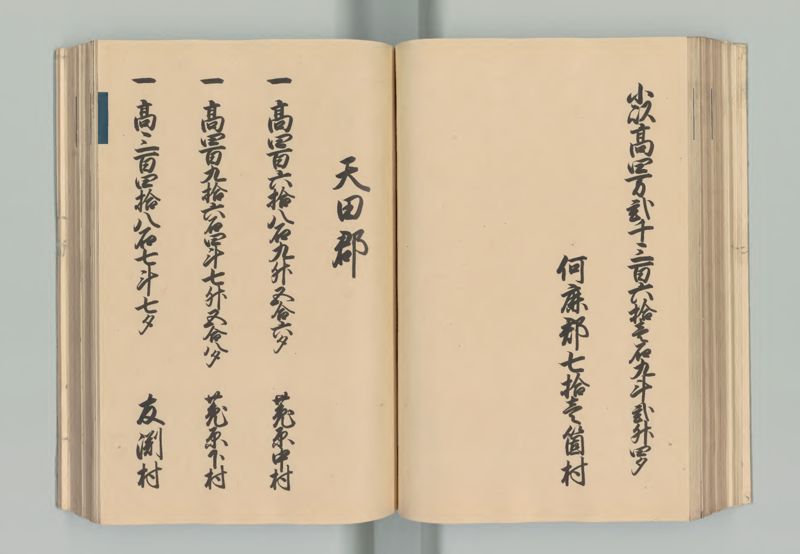 小以高四万弐千三百六拾壱石九斗弐升四夕
何鹿郡七拾壱箇村
天田郡
一 高四百六拾八石九升五合六夕 莵原中村
一 高四百九拾六石四斗七升五合八夕 莵原下村
一 高三百四拾八石七斗七夕 友渕村